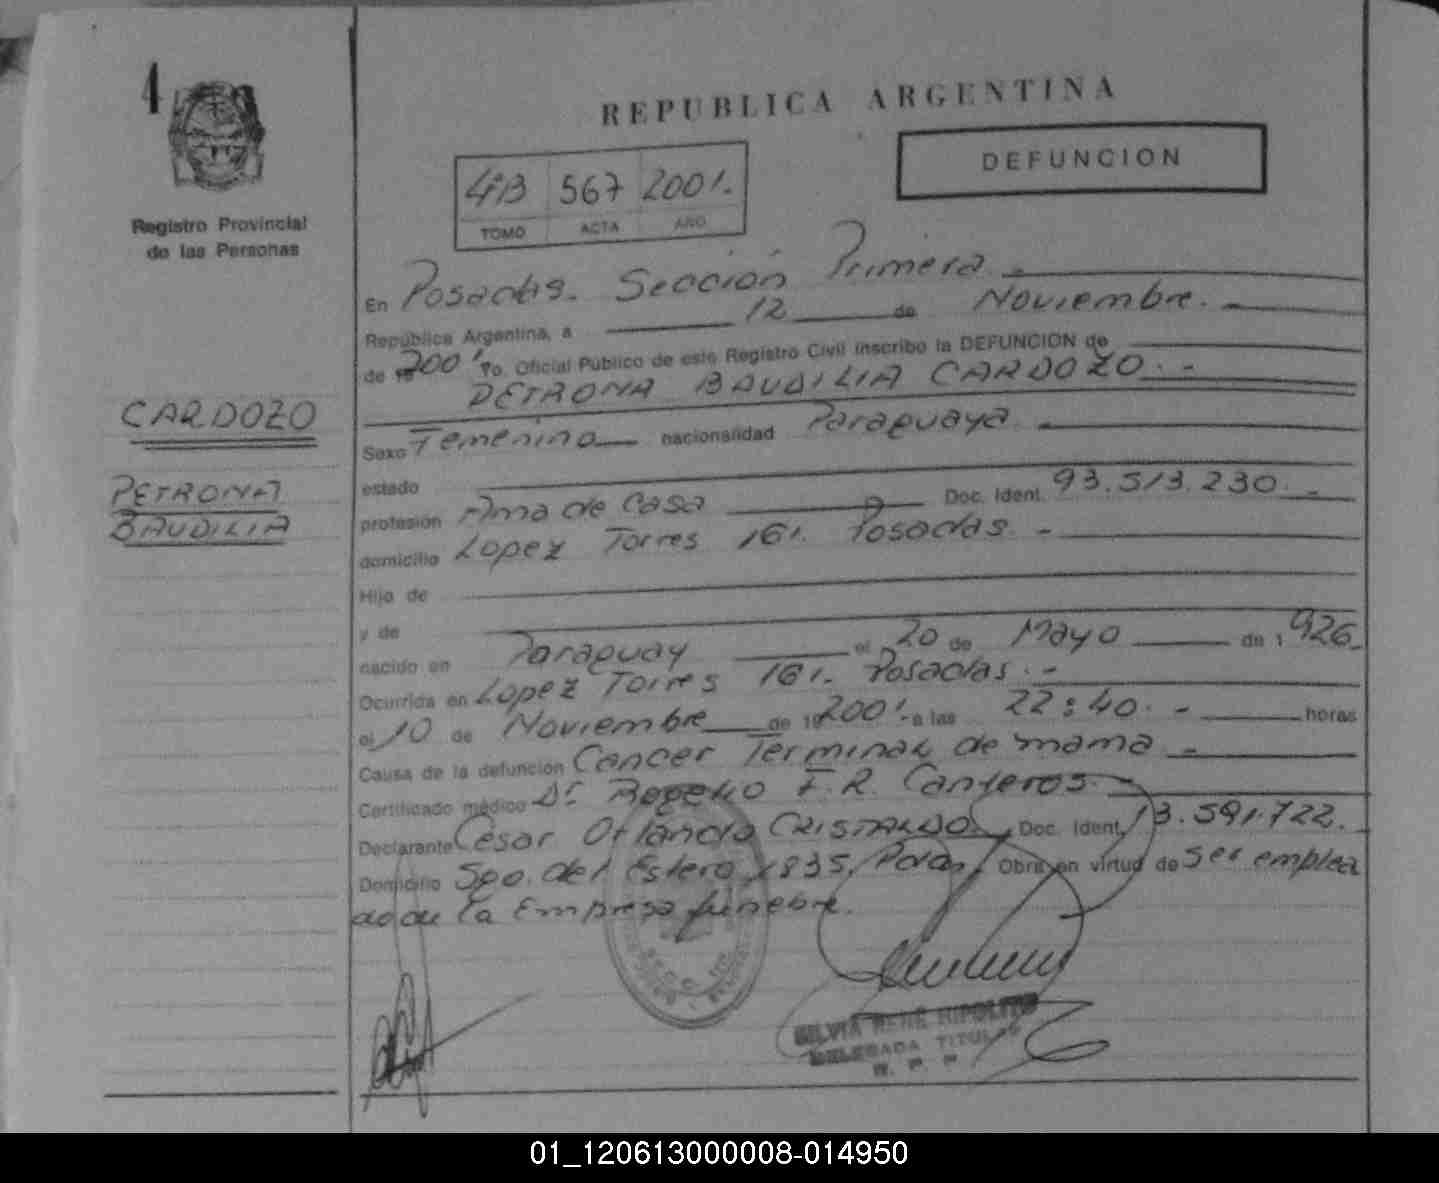 4
Registro Provincial
de las Personas
CARDOZO
PETRONA
BAUDILIA
REPUBLICA ARGENTINA
DEFUNCION
4ºB 567 2001.
TOMO ACTA AÑO
En Posadas. Sección Primera. -
República Argentina, a 12 de Noviembre. -
de 19 2001 Yo. Oficial Público de este Registro Civil inscribo la DEFUNCION de
PETRONA BAUDILIA CARDOZO. -
Sexo Femenino nacionalidad Paraguaya. -
estado
profesión Ama de Casa Doc. Ident. 93.513.230. -
domicilio Lopez Torres 161. Posadas. -
Hijo de
y de
nacido en Paraguay el 20 de Mayo de 1 926 -
Ocurrida en Lopez Torres 161. Posadas. -
el 10 de Noviembre de 19 2001. a las 22:40. - horas
Causa de la defunción Cancer Terminal de mama -
Certificado médico Dr. Rogelio F.R. Canteros. -
Declarante César Orlando CRISTALDO. Doc. Ident. 13.591.722. -
Domicilio Sgo. del Estero 1835, Pdas, Obra en virtud de ser emplea
do de la Empresa funebre.
SILVIA RENÉ HIPOLITO
DELEGADA TITULAR
R. P. P.
01_120613000008-014950